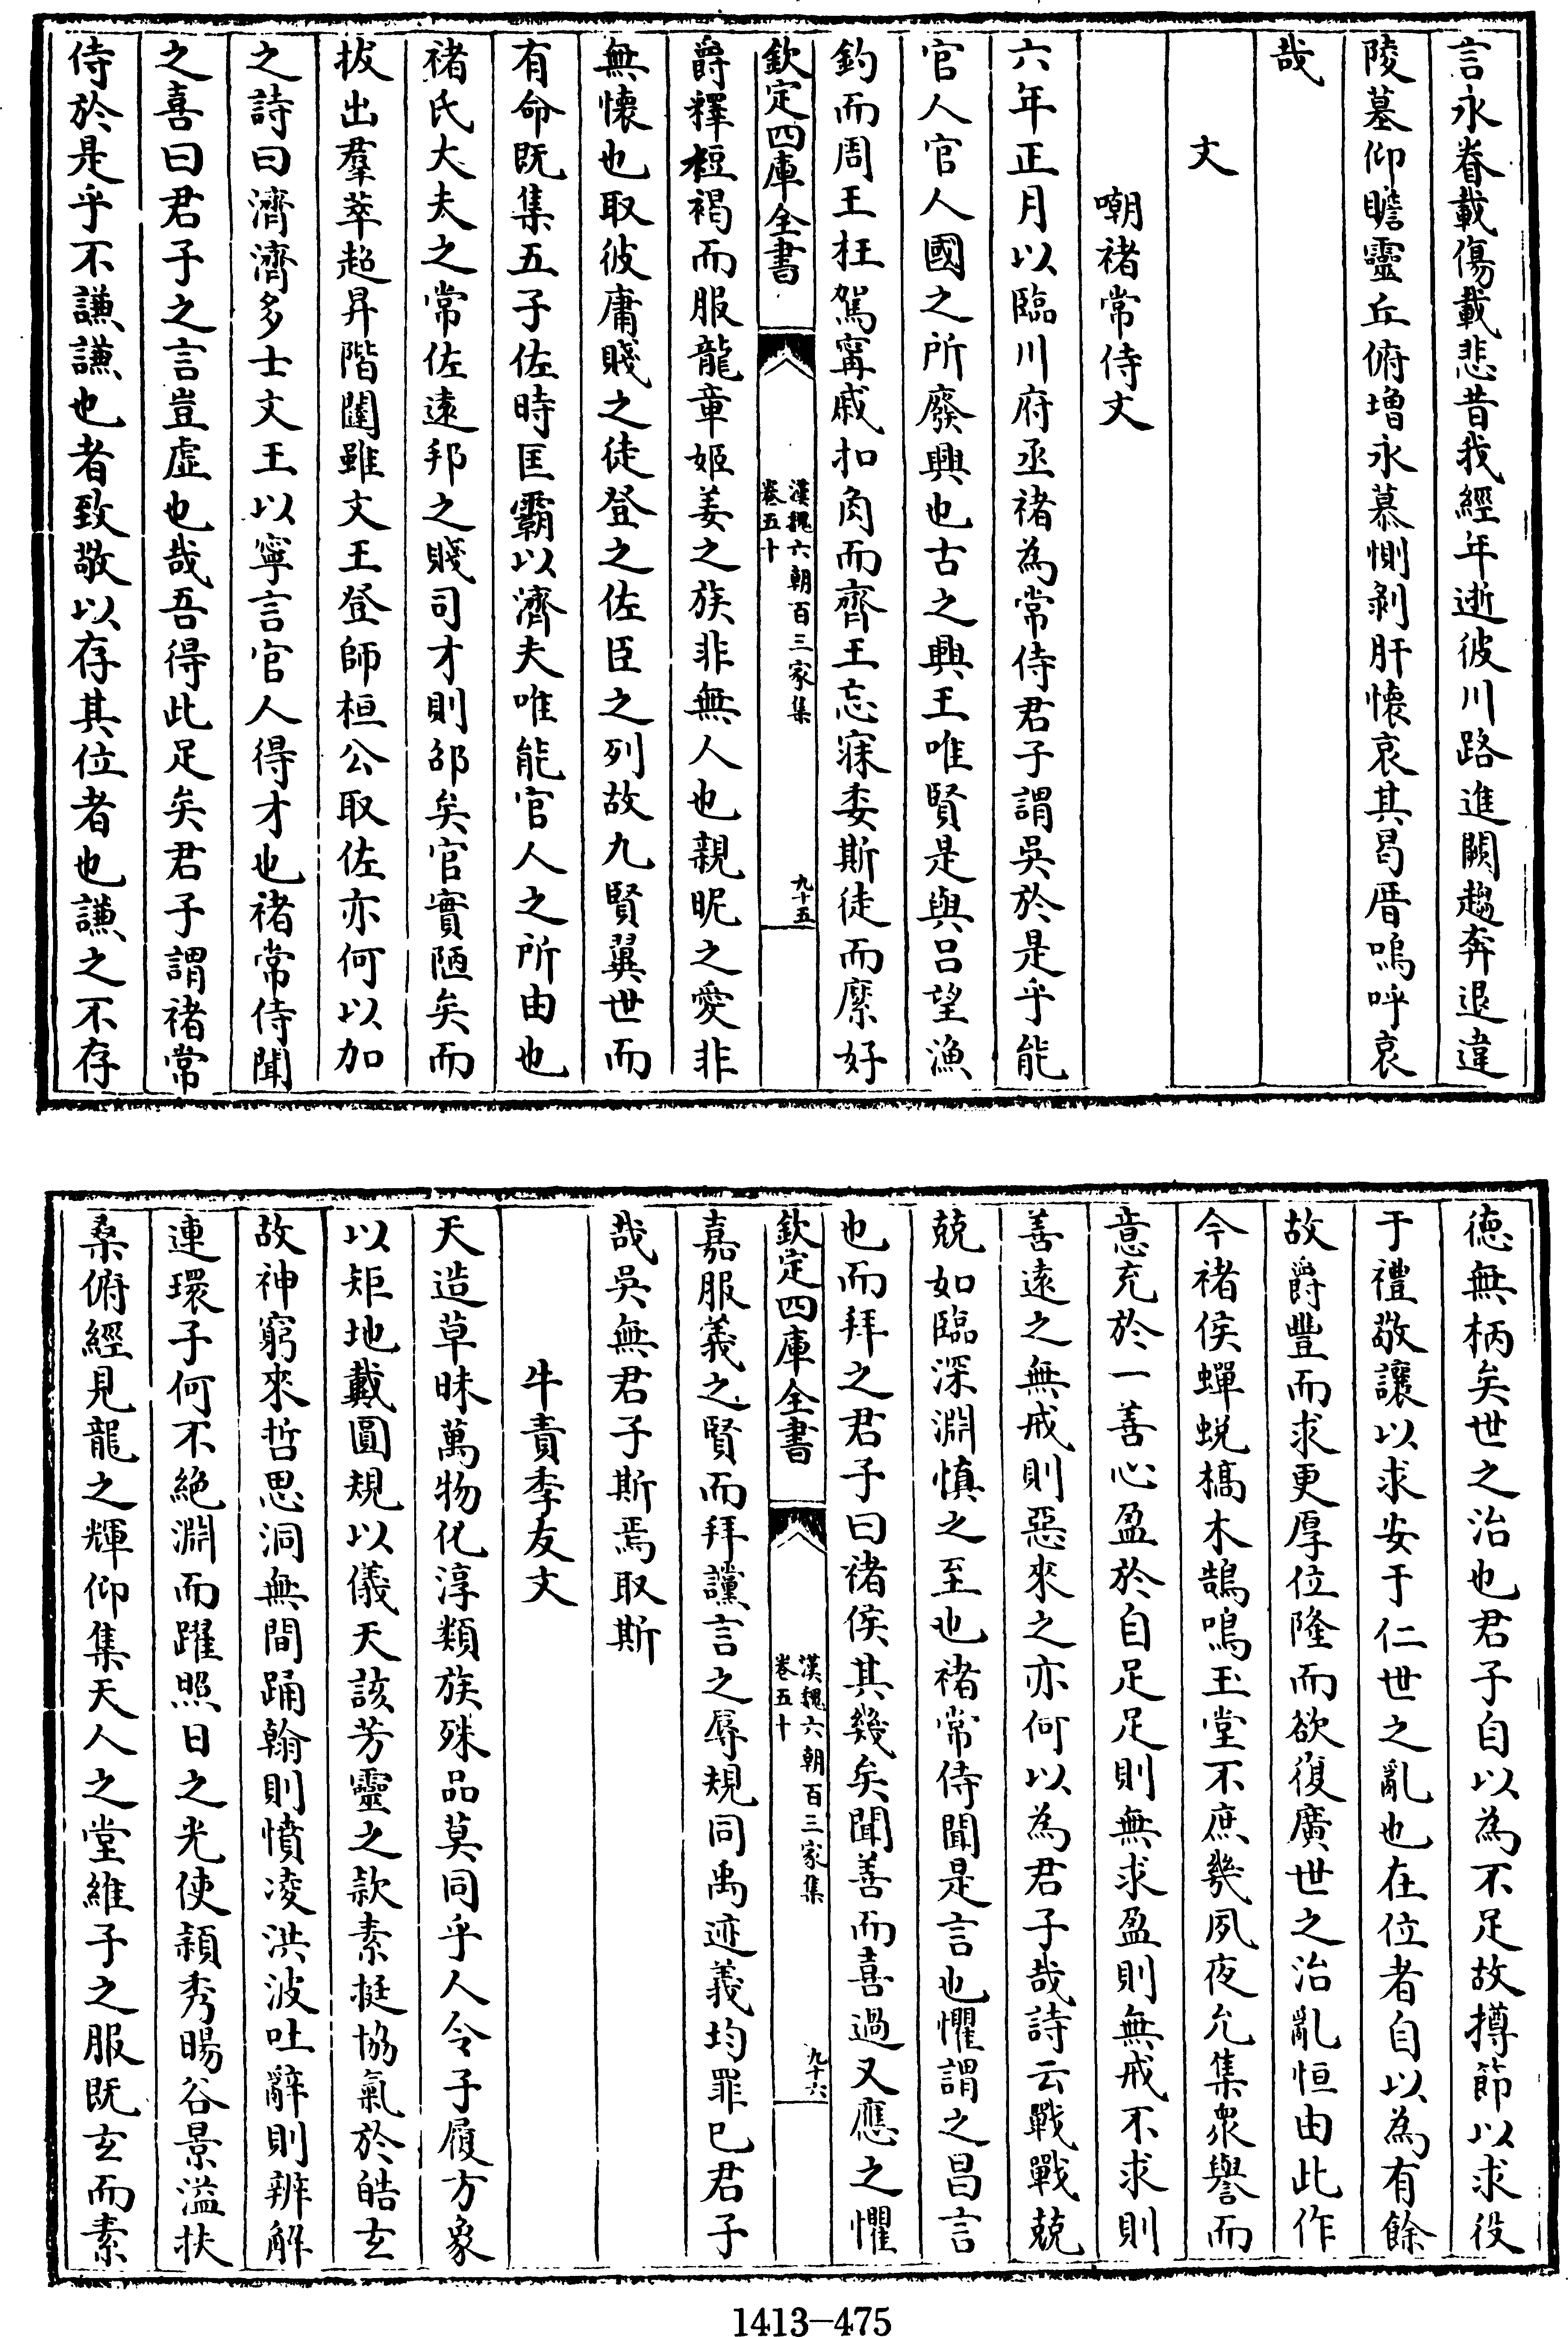 言永眷載傷載悲昔我經年逝彼川路進闕趨奔退違
陵墓仰瞻靈丘俯增永慕惻剝肝懷哀其曷厝嗚呼哀
哉
文
嘲褚常侍文
六年正月以臨川府丞褚為常侍君子謂吳於是乎能
官人官人國之所廢興也古之興王唯賢是與呂望漁
釣而周王枉駕甯戚扣角而齊王忘寐委斯徒而縻好
欽定四庫全書
漢魏六朝百三家集
卷五十
九十五
爵釋裋褐而服龍章姬姜之族非無人也親昵之愛非
無懷也取彼庸賤之徒登之佐臣之列故九賢翼世而
有命既集五子佐時匡霸以濟夫唯能官人之所由也
褚氏大夫之常佐遠邦之賤司才則邵矣官實陋矣而
拔出羣萃超昇階闥雖文王登師桓公取佐亦何以加
之詩曰濟濟多士文王以寧言官人得才也褚常侍聞
之喜曰君子之言豈虛也哉吾得此足矣君子謂褚常
侍於是乎不謙謙也者致敬以存其位者也謙之不存
德無柄矣世之治也君子自以為不足故撙節以求役
于禮敬讓以求安于仁世之亂也在位者自以為有餘
故爵豐而求更厚位隆而欲復廣世之治亂恒由此作
今褚侯蟬蛻槁木鵠鳴玉堂不庶幾夙夜允集衆譽而
意充於一善心盈於自足足則無求盈則無戒不求則
善遠之無戒則惡來之亦何以為君子哉詩云戰戰兢
兢如臨深淵慎之至也褚常侍聞是言也懼謂之昌言
也而拜之君子曰褚侯其幾矣聞善而喜過又應之懼
欽定四庫全書
漢魏六朝百三家集
卷五十
九十六
嘉服義之賢而拜讜言之辱規同禹迹義均罪已君子
哉吳無君子斯焉取斯
牛責季友文
天造草昧萬物化淳類族殊品莫同乎人令子履方象
以矩地戴圓規以儀天該芳靈之款素挺協氣於皓玄
故神窮來哲思洞無間踊翰則憤凌洪波吐辭則辨解
連環子何不絕淵而躍照日之光使穎秀暘谷景溢扶
桑俯經見龍之輝仰集天人之堂維子之服既玄而素
1413-475